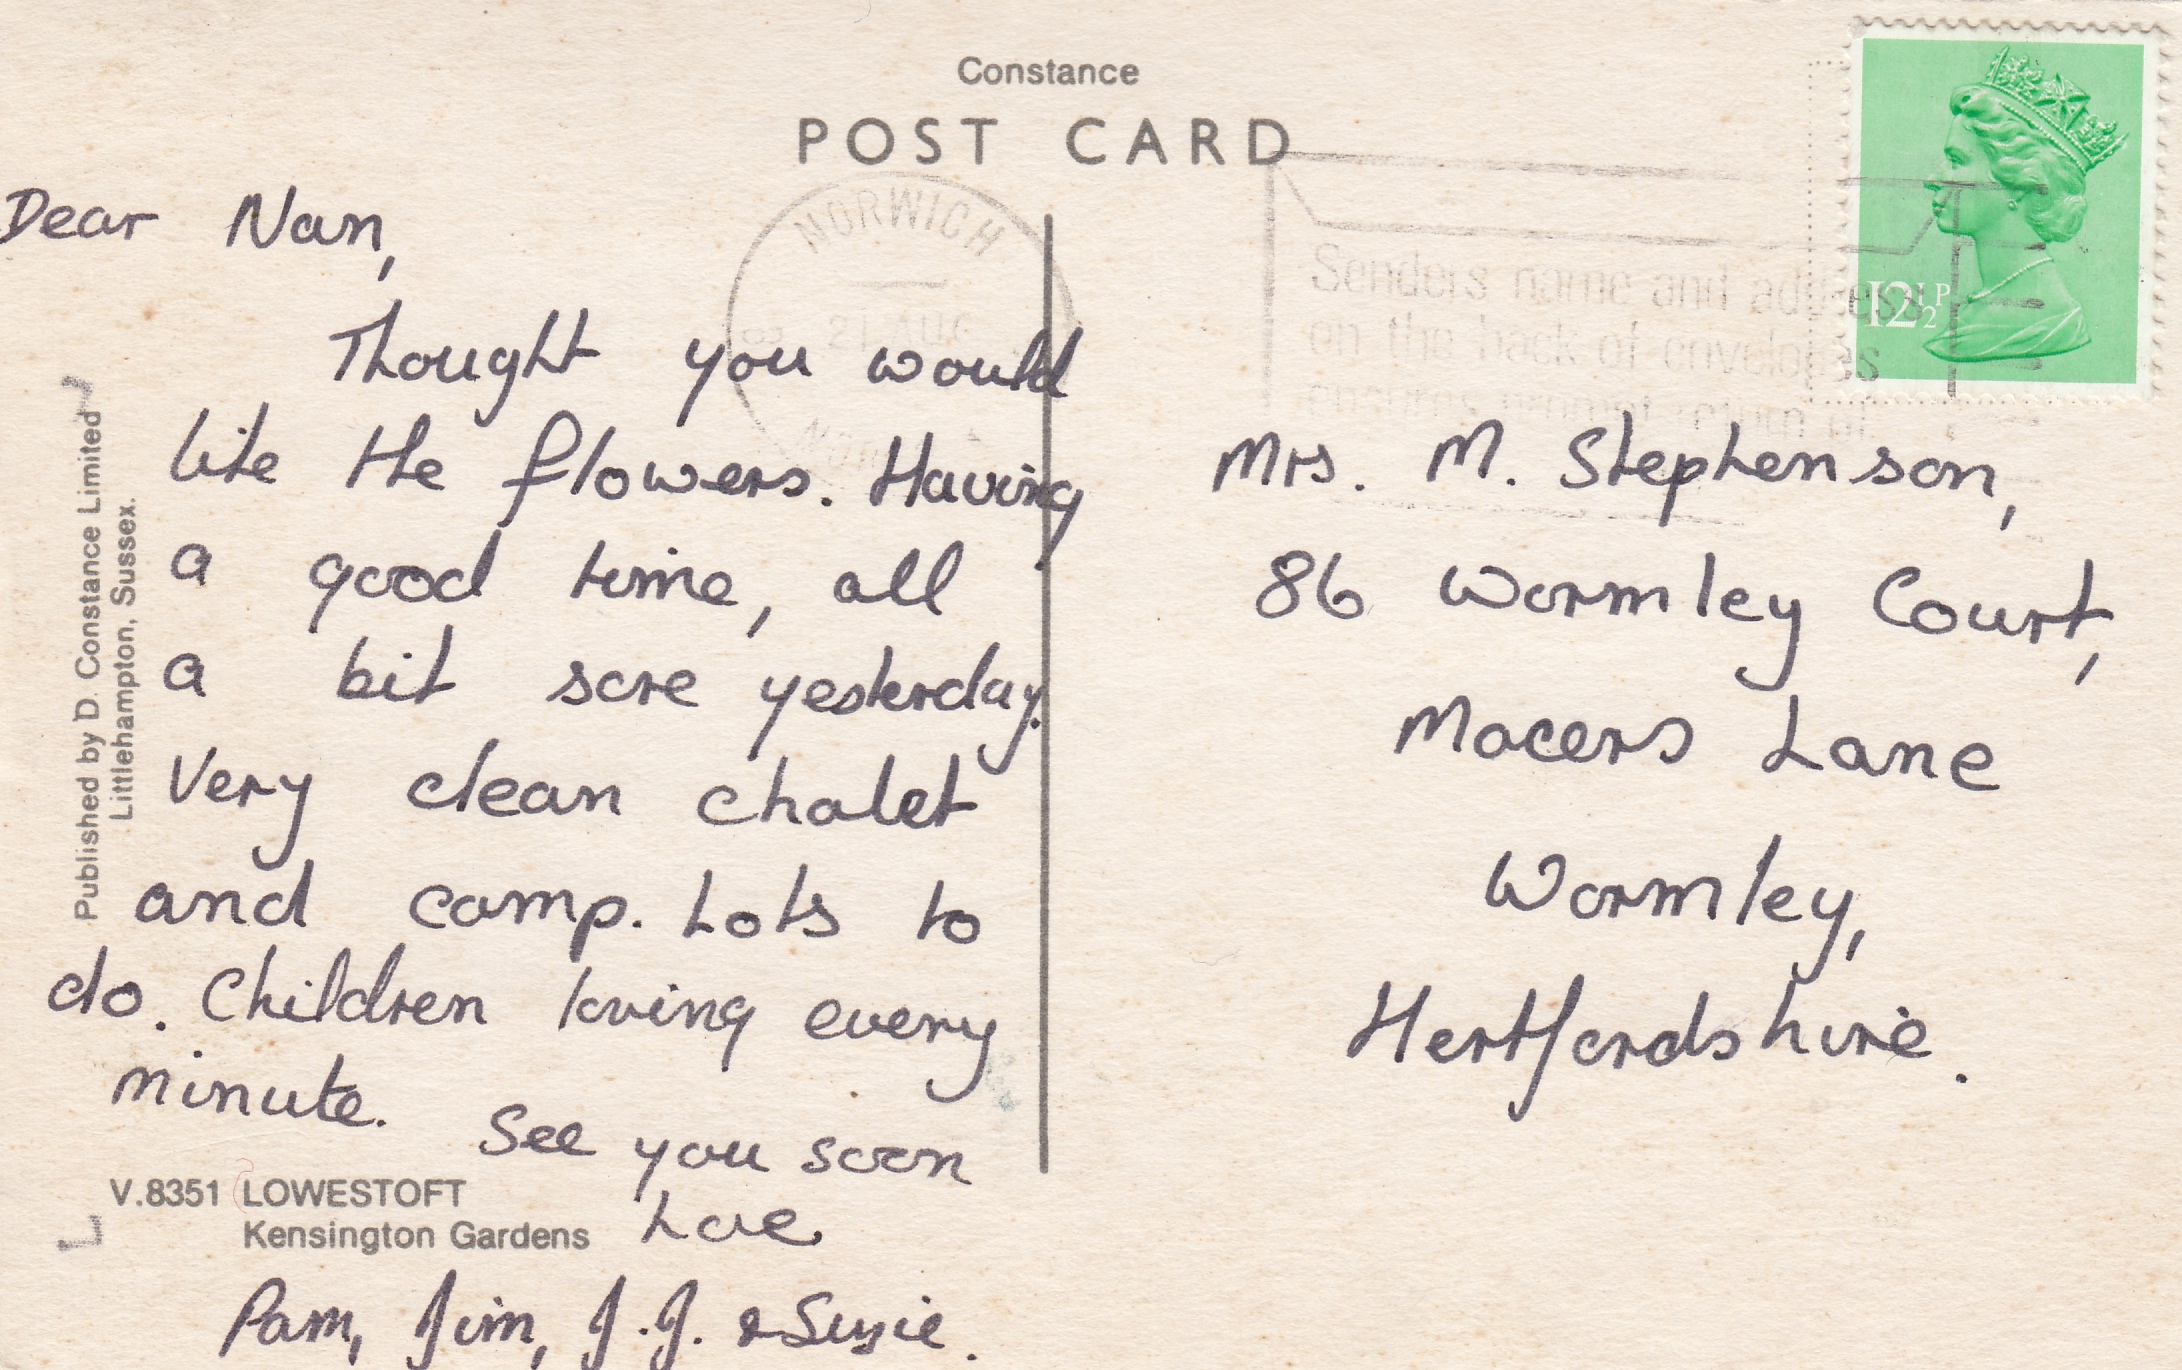 Constance
POST CARD
NORWICH
21 AUG
Senders name and address
on the back of envelopes
ensures prompt return of
12½P
Dear Nan,
Thought you would
like the flowers. Having
a good time, all
a bit sore yesterday.
Very clean chalet
and camp. Lots to
do. Children loving every
minute.
See you soon
Love
Pam, Jim, J.J. & Suzie.
Mrs. M. Stephenson,
86 Wormley Court,
Macers Lane
Wormley,
Hertfordshire.
Published by D. Constance Limited
Littlehampton, Sussex.
V.8351 LOWESTOFT
Kensington Gardens